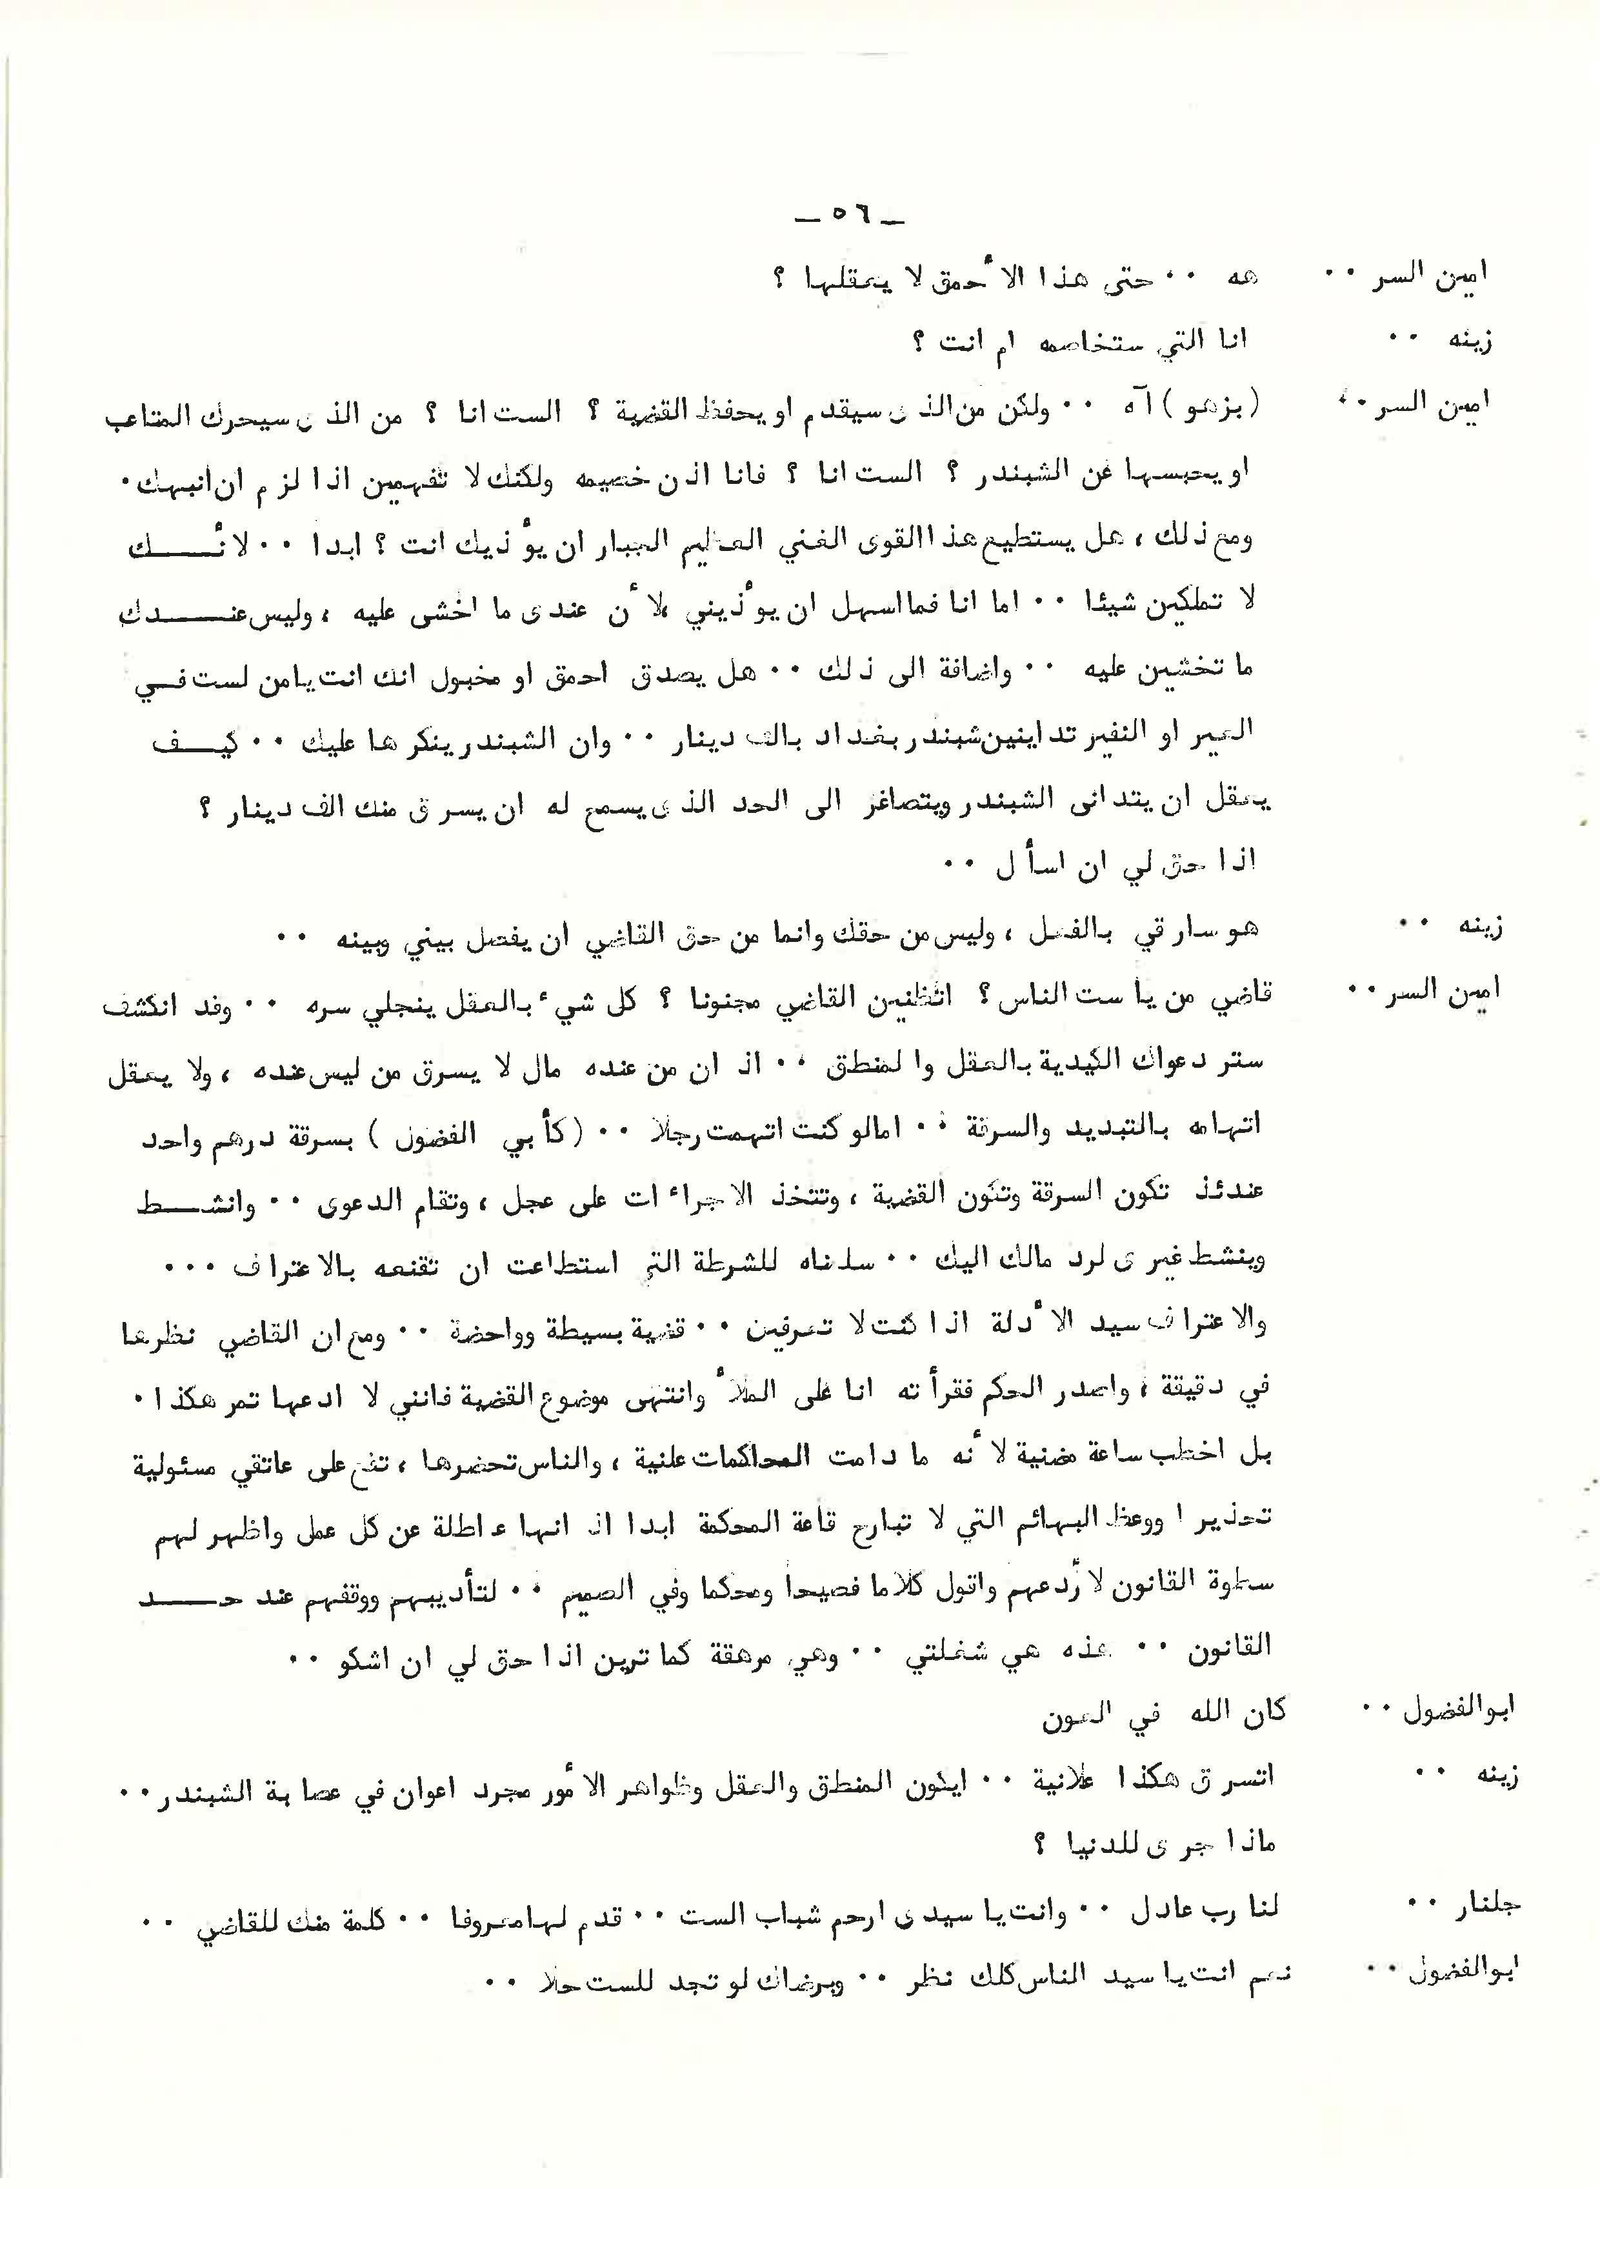 ـ ٥٦ ـ
امين السر ٠٠ هه ٠٠ حتى هذا الأحمق لا يعقلها ؟
زينه ٠٠ انا التي ستخاصمه ام انت ؟
امين السر ٠٠ (بزهو) آه ٠٠ ولكن من الذى سيقدم او يحفظ القضية ؟ الست انا ؟ من الذى سيحرك المتاعب
او يحبسها عن الشبندر ؟ الست انا ؟ فانا اذن خصيمه ولكنك لا تفهمين اذا لزم ان انبهك ٠
ومع ذلك ، هل يستطيع هذا القوى الغني العظيم الجبار ان يؤذيك انت ؟ ابدا ٠٠ لأنـــك
لا تملكين شيئا ٠٠ اما انا فما اسهل ان يؤذيني ، لأن عندى ما اخشى عليه ، وليس عنـــدك
ما تخشين عليه ٠٠ واضافة الى ذلك ٠٠ هل يصدق احمق او مخبول انك انت يا من لست فـي
العير او النفير تداينين شبندر بغداد بالف دينار ٠٠ وان الشبندر ينكرها عليك ٠٠ كيـــف
يعقل ان يتدانى الشبندر ويتصاغر الى الحد الذى يسمح له ان يسرق منك الف دينار ؟
اذا حق لي ان اسأل ٠٠
زينه ٠٠ هو سارقي بالفعل ، وليس من حقك وانما من حق القاضي ان يفصل بيني وبينه ٠٠
امين السر ٠٠ قاضي من يا ست الناس ؟ اتظنين القاضي مجنونا ؟ كل شيء بالعقل ينجلي سره ٠٠ وقد انكشف
ستر دعواك الكيدية بالعقل والمنطق ٠٠ اذ ان من عنده مال لا يسرق من ليس عنده ، ولا يعقل
اتهامه بالتبديد والسرقة ٠٠ اما لو كنت اتهمت رجلا ٠٠ (كأبي الفضول) بسرقة درهم واحد
عندئذ تكون السرقة وتكون القضية ، وتتخذ الاجراءات على عجل ، وتقام الدعوى ٠٠ وانشـــط
وينشط غيرى لرد مالك اليك ٠٠ سلمناه للشرطة التي استطاعت ان تقنعه بالاعتراف ٠٠٠
والاعتراف سيد الأدلة اذا كنت لا تعرفين ٠٠ قضية بسيطة وواحضة ٠٠ ومع ان القاضي نظرها
في دقيقة ، واصدر الحكم فقرأته انا على الملأ وانتهى موضوع القضية فانني لا ادعها تمر هكذا ٠
بل اخطب ساعة مضنية لأنه ما دامت المحاكمات علنية ، والناس تحضرها ، تقع على عاتقي مسئولية
تحذيرا ووعظ البهائم التي لا تبارح قاعة المحكمة ابدا اذ انها عاطلة عن كل عمل واظهر لهم
سطوة القانون لأردعهم واقول كلاما فصيحا ومحكما وفي الصميم ٠٠ لتأديبهم ووقفهم عند حـــد
القانون ٠٠ هذه هي شغلتي ٠٠ وهي مرهقة كما ترين اذا حق لي ان اشكو ٠٠
ابو الفضول ٠٠ كان الله في العون
زينه ٠٠ اتسرق هكذا علانية ٠٠ ايكون المنطق والعقل وظواهر الأمور مجرد اعوان في عصابة الشبندر ٠٠
ماذا جرى للدنيا ؟
جلنار ٠٠ لنا رب عادل ٠٠ وانت يا سيدى ارحم شباب الست ٠٠ قدم لها معروفا ٠٠ كلمة منك للقاضي ٠٠
ابو الفضول ٠٠ نعم انت يا سيد الناس كلك نظر ٠٠ وبرضاك لو تجد للست حلا ٠٠